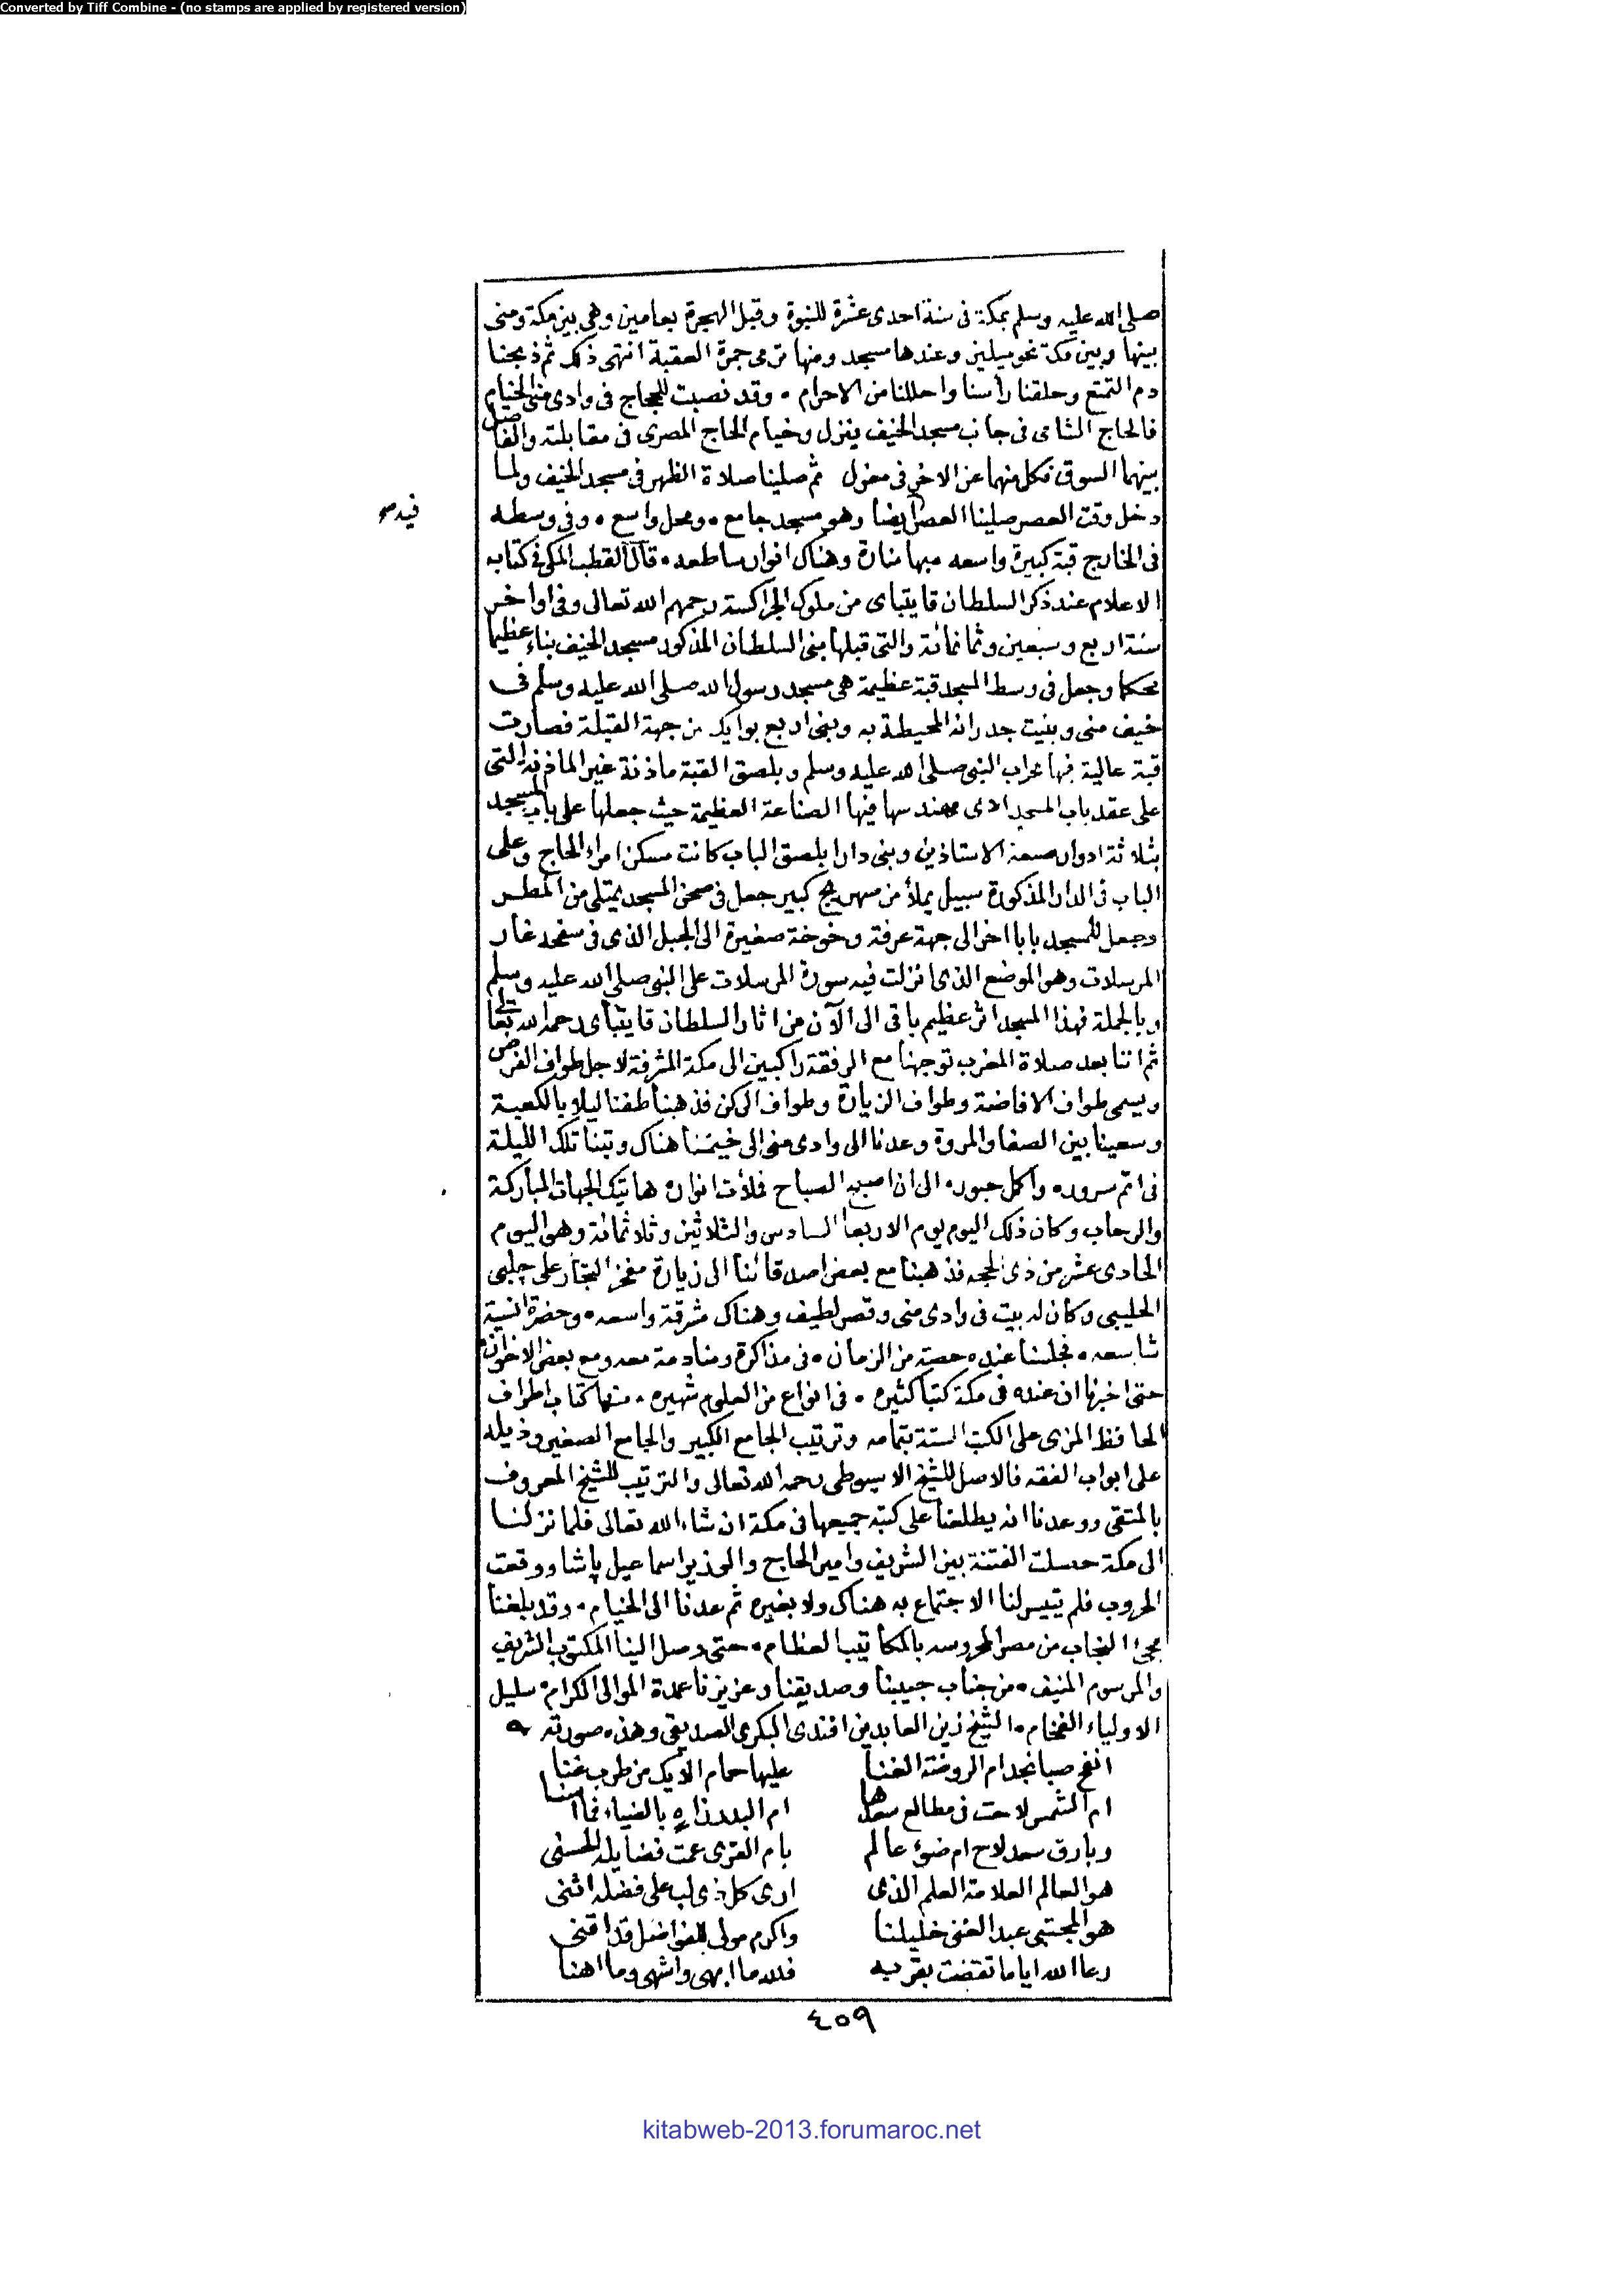 Converted by Tiff Combine - (no stamps are applied by registered version)
صلى الله عليه وسلم بمكة في سنة احدى عشرة للنبوة وقبل الهجرة بعامين وهي بين مكة ومنى
بينها وبين مكة نحو ميلين وعندها مسجد ومنها ترمى جمرة العقبة انتهى ذلك ثم ذبحنا
دم التمتع وحلقنا رأسنا واحللنا من الاحرام • وقد نصبت للحجاج في وادى منى الخيام
فالحاج الشامى فى جانب مسجد الخيف ينزل وخيام الحاج المصرى فى مقابلته والفاصل
بينهما السوق فكل منهما عن الاخر فى معزل ثم صلينا صلاة الظهر فى مسجد الخيف ولما
دخل وقت العصر صلينا العصر ايضا وهو مسجد جامع • ومحل واسع • وفى وسطه
فيه
فى الخارج قبة كبيرة واسعه مبها منارة وهناك انوار ساطعه • قال القطب المكى فى كتاب
الاعلام عند ذكر السلطان قايتباى من ملوك الجراكسة رحمهم الله تعالى وفى اواخر
سنة اربع وسبعين وثمانمائة والتى قبلها بنى السلطان المذكور مسجد الخيف بناء عظيما
محكما وجعل فى وسط المسجد قبة عظيمة هى مسجد رسول الله صلى الله عليه وسلم فى
خيف منى وبنيت جدرانه المحيطة به وبنى اربع بوايك من جهة القبلة فصارت
قبة عالية فيها محراب النبى صلى الله عليه وسلم وبلصق القبة ماذنة غير الماذنة التى
على عقد باب المسجد ادى مهندسها فيها الصناعة العظيمة حيث جعلها على باب المسجد
بثلاثة ادوار صنعة الاستاذين وبنى دارا بلصق الباب كانت مسكن امراء الحاج وعلى
الباب فى الدار المذكورة سبيل يملأ من صهريج كبير جعل فى صحن المسجد يمتلى من المطر
وجعل للمسجد بابا اخر الى جهة عرفة وخوخة صغيرة الى الجبل الذى فى سفحه غار
المرسلات وهو الموضع الذى نزلت فيه سورة المرسلات على النبى صلى الله عليه وسلم
وبالجملة فهذا المسجد اثر عظيم باقى الى الآن من اثار السلطان قايتباى رحمه الله تعالى
ثم اننا بعد صلاة المغرب توجهنا مع الرفقة راكبين الى مكة المشرفة لاجل طواف الفرض
ويسمى طواف الافاضة وطواف الزيارة وطواف الركن فذهبنا طفنا ليلا بالكعبة
وسعينا بين الصفا والمروة وعدنا الى وادى منى الى خيمنا هناك وبتنا تلك الليلة
فى اتم سرور• واكمل حبور• الى ان اصبح الصباح فلأت انوار• هاتيك الجهات المباركة
والرحاب وكان ذلك اليوم يوم الاربعا السادس والثلاثين وثلاثمائة وهو اليوم
الحادى عشر من ذى الحجه فذهبنا مع بعض اصدقائنا الى زيارة مفخر التجار على چلبى
الحليبى وكان له بيت فى وادى منى وقصر لطيف وهناك مشرقة واسعه • وحضرة انسية
شاسعه • فجلسنا عنده حصة من الزمان • فى مذاكرة ومنادمة معه ومع بعض الاخوان
حتى اخبرنا ان عنده فى مكة كتبا كثيره • فى انواع من العلوم شهيره • منها كتاب اطراف
الحافظ المزى على الكتب الستة بتمامه وترتيب الجامع الكبير والجامع الصغير وذيله
على ابواب الفقه فالاصل للشيخ الاسيوطى رحمه الله تعالى والترتيب للشيخ المعروف
بالمتقى ووعدنا انه يطلعنا على كتبه جميعها فى مكة ان شاء الله تعالى فلما نزلنا
الى مكة حصلت الفتنة بين الشريف وامير الحاج والوزير اسماعيل پاشا ووقعت
الحروب فلم يتيسر لنا الاجتماع به هناك ولا بغيره ثم عدنا الى الخيام • وقد بلغنا
مجئ النجاب من مصر المحروسه بالمكاتيب العظام • حتى وصل الينا المكتوب الشريف
والمرسوم المنيف • من جناب حبيبنا وصديقنا وعزيزنا عمدة الموالى الكرام • سليل
الاولياء الفخام • الشيخ زين العابدين افندى البكرى الصديقى وهذه صورته
انفح صبا نجد ام الروضة الغنا عليها حمام الأيك من طرب غنا
ام الشمس لاحت فى مطالع سعدها ام البدر زاه بالضياء فما اسنا
وبارق سعد لاح ام ضوء عالم بام القرى عمت فضايله الحسنى
هو العالم العلامة العلم الذى ارى كل ذى لب على فضله اثنى
هو المجتبى عبد الغنى خليلنا واكرم مولى للفواضل قد اقنى
رعا الله اياما تقضت بقربه فلله ما ابهى واشهى وما اهنا
٤٥٩
kitabweb-2013.forumaroc.net